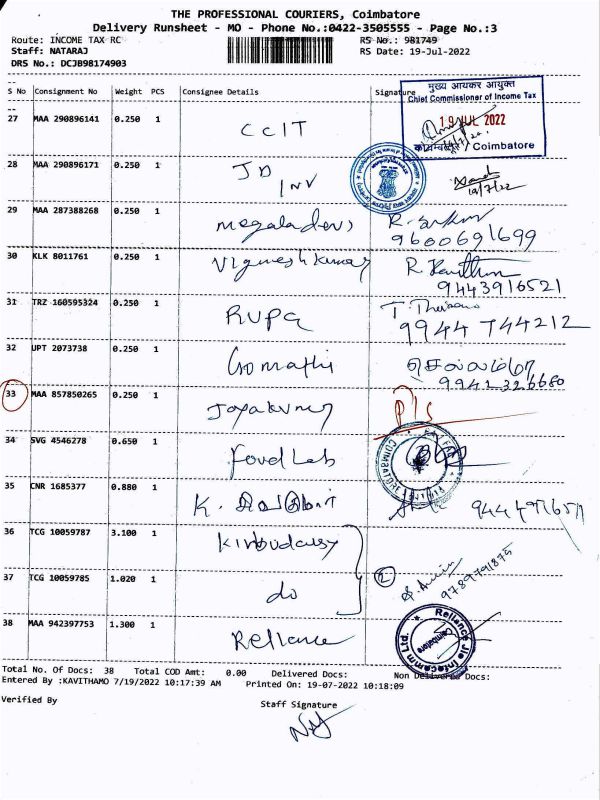 THE PROFESSIONAL COURIERS, Coimbatore
Delivery Runsheet - MO - Phone No.:0422-3505555 - Page No.:3
Route: INCOME TAX RC
RS No.: 981749
Staff: NATARAJ
RS Date: 19-Jul-2022
DRS No.: DCJB98174903
S No Consignment No Weight PCS Consignee Details Signature
मुख्य आयकर आयुक्त
Chief Commissioner of Income Tax
19 JUL 2022
Coimbatore
27 MAA 290896141 0.250 1 CCIT
28 MAA 290896171 0.250 1 JD
INV
19/7/22
29 MAA 287388268 0.250 1 megaladevi
9600691699
30 KLK 8011761 0.250 1 Vigneshkumar
9443916521
31 TRZ 160595324 0.250 1 RUPA
9944 744212
32 UPT 2073738 0.250 1 Gomathi
9941 326680
33 MAA 857850265 0.250 1 Jayakumar
34 SVG 4546278 0.650 1 Food Lab
COIMBATORE
35 CNR 1685377 0.880 1 K.
36 TCG 10059787 3.100 1
2
9789791875
37 TCG 10059785 1.020 1 do
38 MAA 942397753 1.300 1 Reliance
Reliance Jio Infocomm Ltd.
Coimbatore
Total No. Of Docs: 38 Total COD Amt: 0.00 Delivered Docs: Non Delivered Docs:
Entered By :KAVITHAMO 7/19/2022 10:17:39 AM Printed On: 19-07-2022 10:18:09
Verified By
Staff Signature